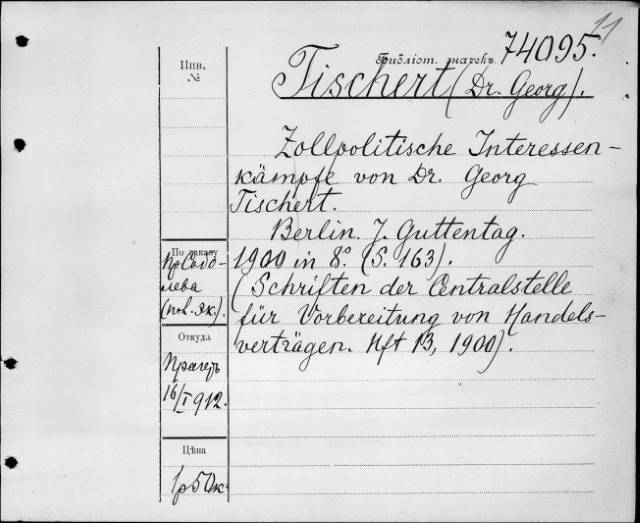 11
Библіот. знакъ 74095.
Инв. №
Tischert (Dr. Georg).
Zollpolitische Interessen-
kämpfe von Dr. Georg
Tischert.
Berlin. J. Guttentag.
1900 in 8º. (S. 163).
(Schriften der Centralstelle
für Vorbereitung von Handels-
verträgen. Hft 13, 1900).
По заказу
лева
Откуда
Прагеръ
16/I 912.
Цѣна
1р50к